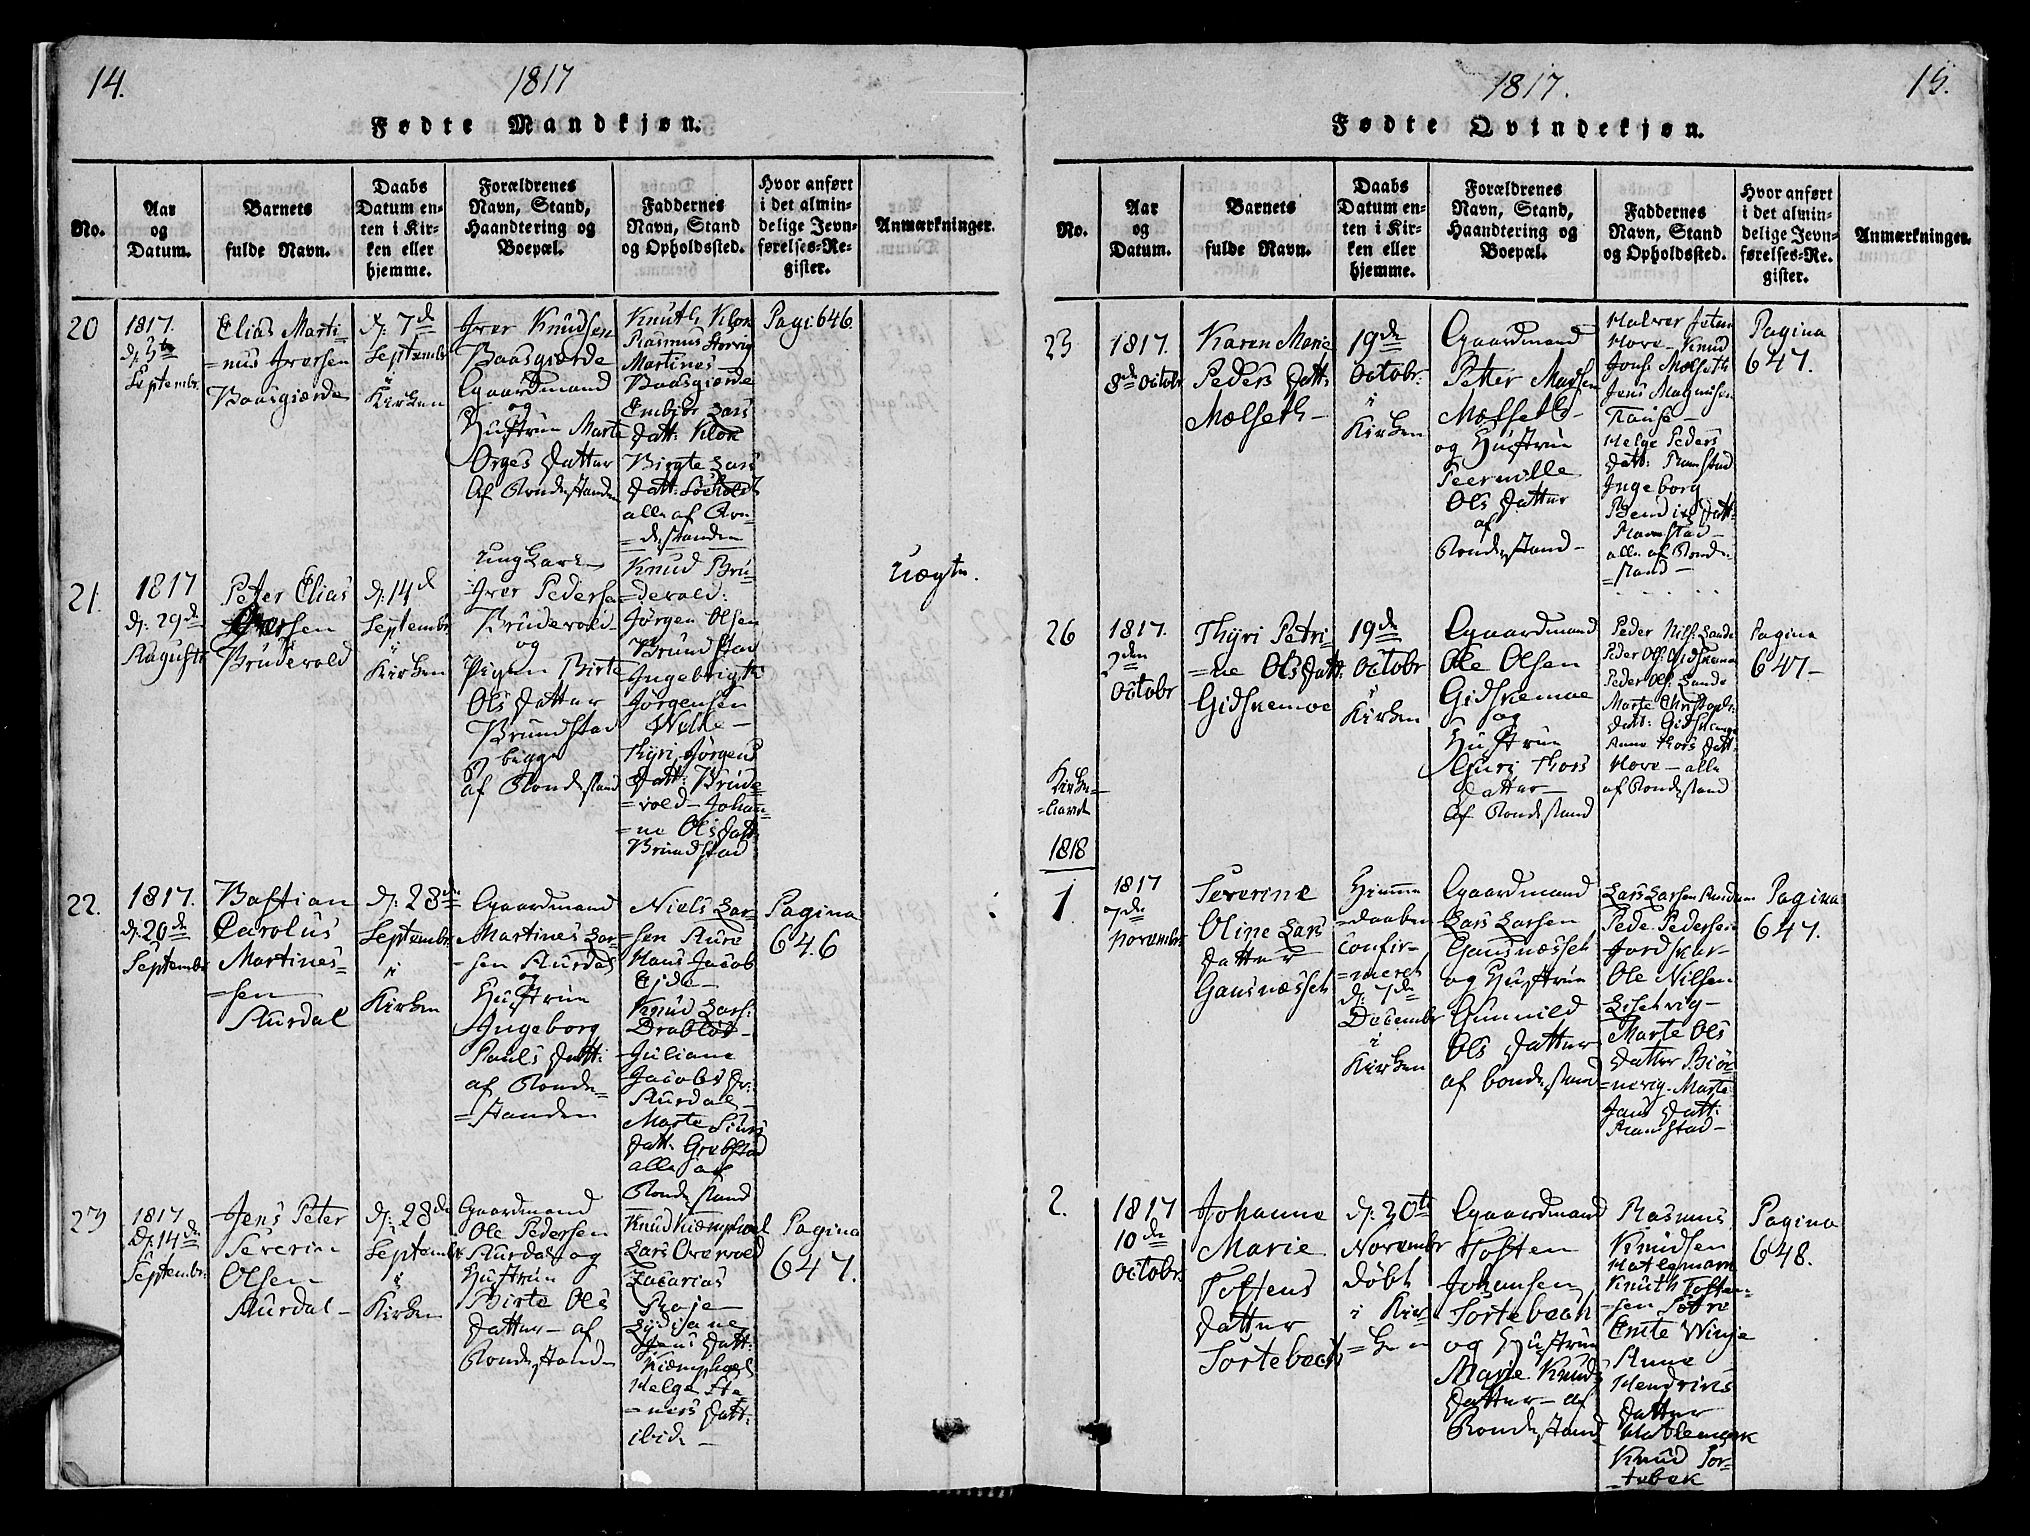 14.
1817
Fødte Mandkjøn.
No.
Aar
og
Datum.
Barnets
fulde Navn.
Daabs
Datum en-
ten i Kir-
ken eller
hjemme.
Forældrenes
Navn, Stand,
Haandtering og
Boepæl.
Faddernes
Navn, Stand
og Opholdssted.
Hvor anført
i det almin-
delige Jevn-
førelses-Re-
gister.
Anmærkninger.
20
1817.
Septembr.
Elias Marti-
=nus Iversen
Baasgierde
d: 7de
Septembr
i
Kirken
Iver Knudsen
Baasgierde
Gaardmand
og
Hustrue Marte
Datter
Af Bondestanden
Knut L. Klok
Rasmus Storvig
Martines
Baasgierde
Lars
Datt: Klok
Birgte Lars
Datt: Søeholdt
alle af Bon-
=destanden
Pagi 646.
21.
1817
d: 29de
August
Peter Elias
Iversen
Brudevold
d: 14de
Septembr
i
Kirken
Ung Karl
Iver Pedersen
Brudevold
og
Pigen Birte
Ols Datter
Brundstad
begge
af Bondestand
Knud Bru-
=devold:
Jørgen Olsen
Brundstad
Ingebrigt
Jørgensen
Welle
Thyri Jørgens
Datt: Brude-
=vold Johan-
=ne Ols Datt:
Brundstad
Uægte.
22.
1817.
d: 20de
Septembr
Bastian
Carolus
Martines-
=sen
Aurdal
d: 28de
Septembr
i
Kirken
Gaardmand
Martines Lar-
=sen Aurdal
og
Hustrue
Ingeborg
Pauls Datt:
af Bonde-
=standen
Niels Lar-
=sen Aure
Hans Jacob
Eide
Knud Lars:
Drabløs
Juliane
Jacobs Dr:
Aurdal
Marte Siurs
Datt: Grebstad
alle af
Bondestand
Pagina
646
23
1817
D: 14de
Septembr.
Jens Peter
Severin
Olsen
Aurdal
d: 28de
Septembr
i
Kirken
Gaardmand
Ole Pedersen
Aurdal og
Hustrue
Birte Ols
Datter af
Bondestand
Knud Kiemphoel
Lars Overvold
Zacarias
Roje
Datt:
Kiemphoel
Helge Ste-
=ners Datt:
ibid
Pagina
647.
1817.
15.
Fødte Qvindekjøn.
No.
Aar
og
Datum.
Barnets
fulde Navn.
Daabs
Datum en-
ten i Kir-
ken eller
hjemme.
Forældrenes
Navn, Stand,
Haandtering og
Boepæl.
Faddernes
Navn, Stand
og Opholdssted.
Hvor anført
i det almin-
delige Jevn-
førelses-Re-
gister.
Anmærkninger.
25
1817.
8de Octobr.
Karen Marie
Peders Datt:
Mælseth
19de
Octobr:
i
Kirken
Gaardmand
Petter Madsen
Mælseth
og Hustrue
Peernille
Ols Datter
af
Bondestand
Halver
Hove Knud
Jons: Mælseth
Jens Magnusen
Helge Peders
Datt: Ramstad
Ingeborg
Bendix Datt:
Ramstad
alle af Bonde-
=stand
Pagina
647.
26
1817.
2den
Octobr
Thyri Petri-
=ne Ols Datt:
Gidskemoe
19de
Octobr
i
Kirken
Gaardmand
Ole Olsen
Gidskemoe
og
Hustrue
Guri Thors
Datter
af Bondestand
Peder Nils: Sande
Peder Ols: Gidskemoe
Peder Ols: Sande
Marte Christoph:
Datt: Gidskemoe
Anne Thors Datt:
Hove alle
af Bondestand
Pagina
647
Kirke-
=Aaret
1818
1.
1817
7de
Novembr
Severine
Oline Lars
Datter
Gausnæsseth
Hiemme
=daaben
confir-
=meret
d: 7de
Decembr
i
Kirken
Gaardmand
Lars Larsen
Gausnæsseth
og Hustrue
Gunnild
Ols Datter
af bondestand
Lars Larsen
Peder Pedersen
Ole Nilsen
Marte Ols
Datter Biør-
=nevig. Marte
Jans Datt:
Ramstad
Pagina
647.
2.
1817
10de
Octobr.
Johanne
Marie
Toftens
Datter
Sortebech
d: 30te
Novembr
døbt
i Kir-
=ken
Gaardmand
Tosten
Johansen
Sortebech
og Hustrue
Marie Knuds
Datter af
Bondestand
Rasmus
Knudsen
Hatlemark
Knuth Tosten-
=sen Søttre
Emte Winje
Anne
Hendriks
Datter
Hatlemark
Knud Sor-
=tebek
Pagina
648.